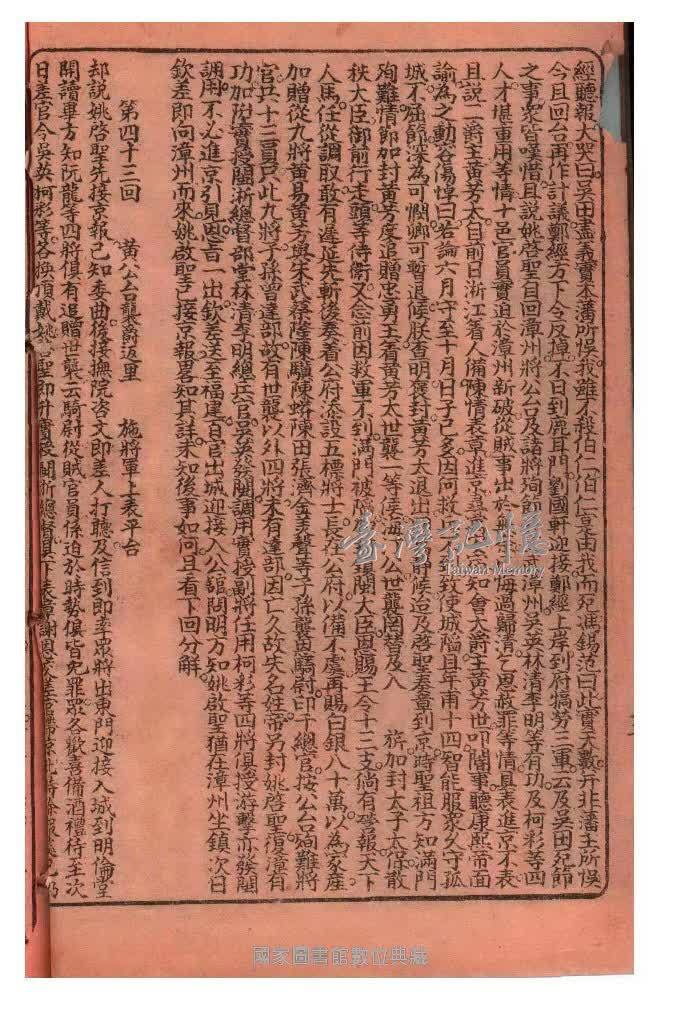 經聽報大哭曰吳田盡義實本藩所悞我雖不殺伯仁伯仁是由我而死馮錫范曰此實天數并非藩主所悞
今且回台再作計議鄭經方下令反掉不日到鹿耳門劉國軒迎接鄭經上岸到府犒勞三軍云及吳田死節
之事眾皆嘆惜且說姚啓聖自回漳州將公台及諸將殉節漳州吳英林清李明等有功及柯彩等四
人才堪重用等情十邑官員實迫於漳州新破從賊事出於無悔過歸清乞恩赦罪等情具表進京不表
且說一爵主黃芳太目前日浙江着人備陳情表章進京知會大爵主黃芳世叩閽事聽康熙帝面
諭為之動容傷悼曰若論六月守至十月日子已多因何救不致使城陷且年甫十四智能服眾久守孤
城不屈節深為可憫卿可暫退候朕查明褒封黃芳太退出候迨及啓聖奏章到京時聖祖方知滿門
殉難情節加封黃芳度追贈忠勇王着黃芳太世襲一等侯海公世襲罔替及入 旂加封太子太保散
秩大臣御前行走頭等侍衛又念前因救軍不到滿門被陷閩大臣恩賜王令十三支倘有警報天下
人馬任從調取敢有遲延先斬後奏着公府添設五標將士長在公府以備不虞再賜白銀八十萬以為家產
加贈從九將黃易黃芳與朱武蔡隆陳驥陳蟒陳田張濟金美聲等子孫襲恩騎尉印千總官按公台殉難將
官兵十三員只此九將子孫曾達部故有世襲以外四將未有達部因亡久故失名姓帝另封姚啓聖復漳有
功加陞實授閩浙總督部堂林清李明總兵官吳英發閩調用實授副將任用柯彩等四將俱授游擊亦發閩
調用不必進京引見恩旨一出欽差送至福建百官出城迎接入公舘問明方知姚啟聖猶在漳州坐鎮次日
欽差即向漳州而來姚啟聖已接京報畧知其詳未知後事如何且看下回分解
第四十三回 黃公台襲爵返里 施將軍上表平台
却說姚啓聖先接京報已知委曲後接撫院咨文即差人打聽及信到即率眾將出東門迎接入城到明倫堂
開讀畢方知阮龍等四將俱有追贈世襲云騎尉從賊官員係迫於時勢俱皆免罪眾各歡喜備酒禮待至次
日差官令吳英柯彩等各換頂戴姚啓聖即升實授閩浙總督具下表章謝恩
國家圖書館數位典藏
臺灣記憶
Taiwan Memory